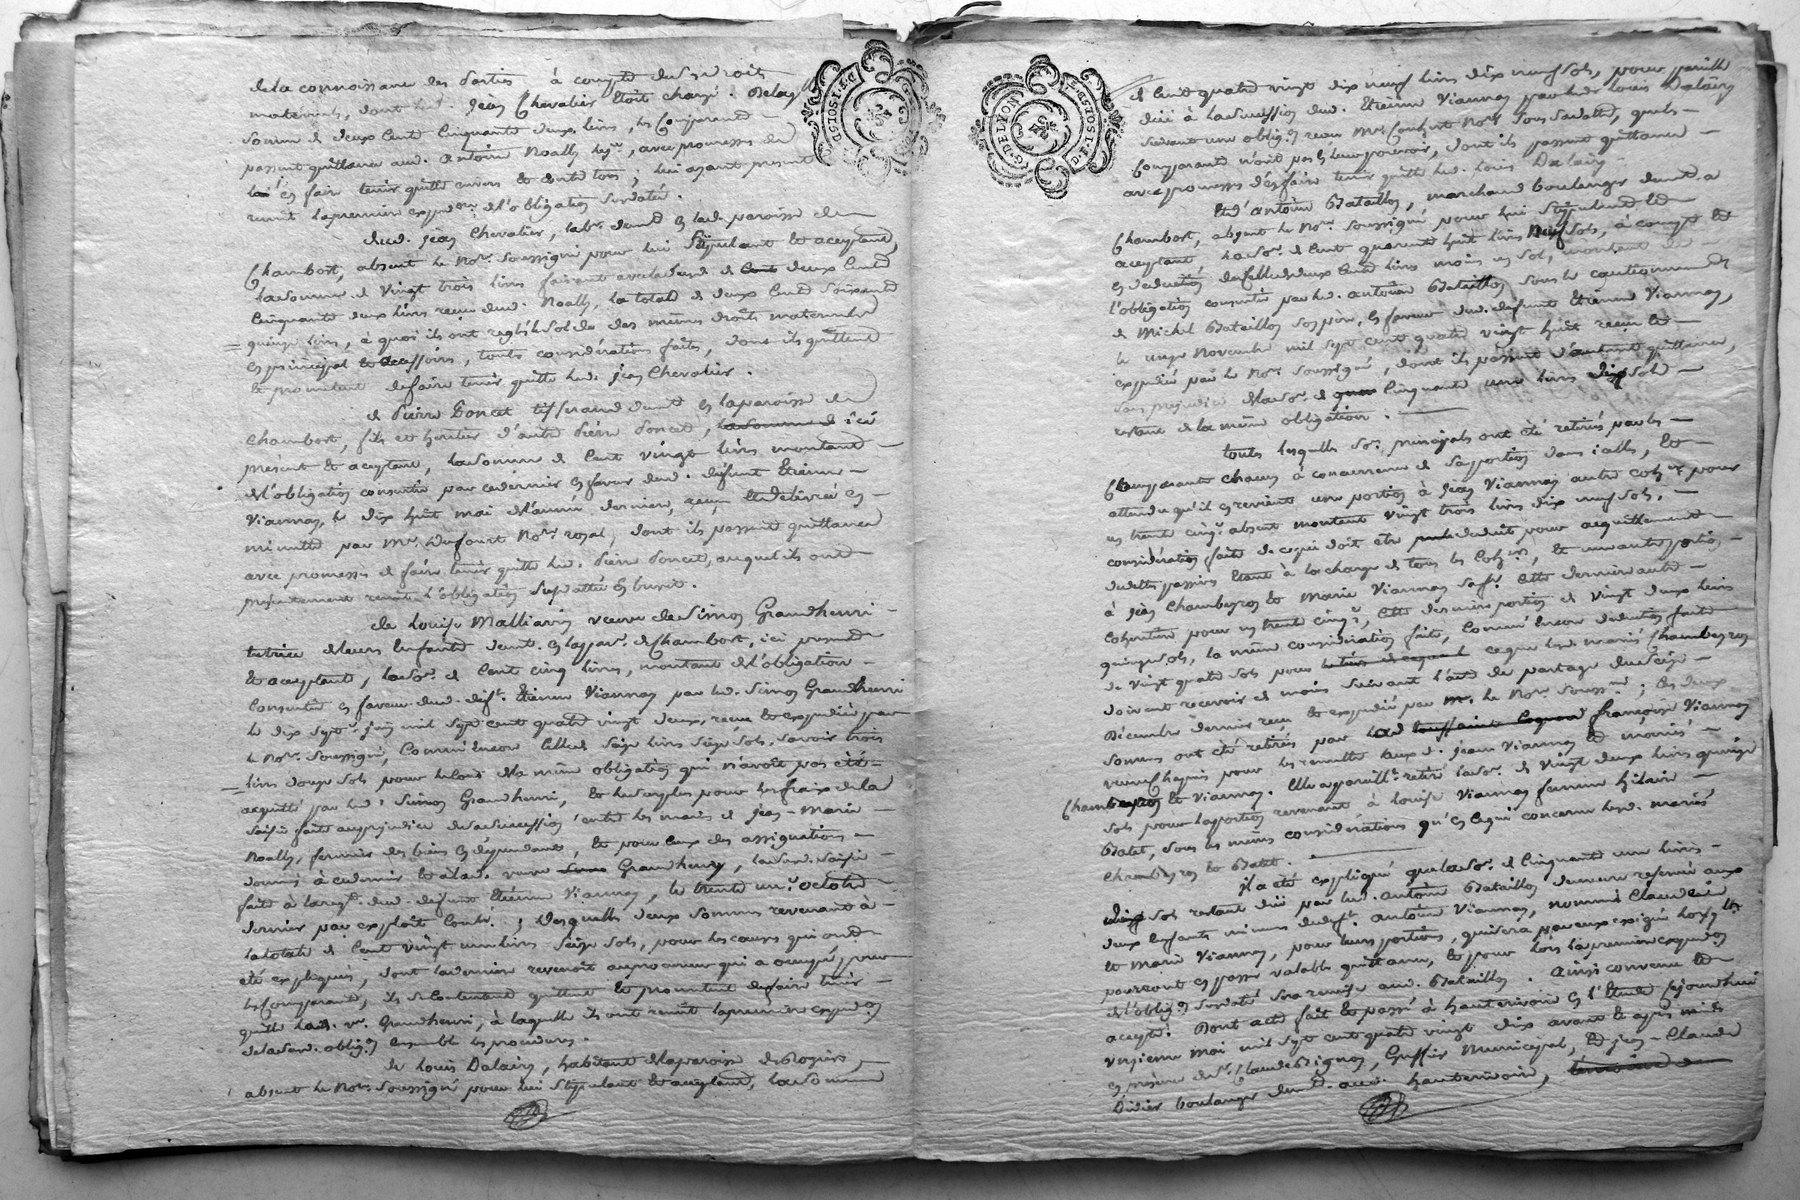 de la connoissance des parties à compte desd. droits
maternels, dont led. Jean Chevalier étoit chargé. De la
somme de deux cent cinquante deux livres, les comparants
passent quittance aud. Antoine Noally, avec promesses de
l'en faire tenir quitte envers et contre tous ; lui ayant présentement
remis la première expéd. de l'obligation susdatée.
dud. Jean Chevalier, lab. demt. en lad. paroisse de
Chambort, absent le No.re soussigné pour lui stipulant et acceptant,
la somme de vingt trois livres faisant avec lesd. de deux cents
cinquante deux livres reçu dud. Noally, la totale de deux cents soixante
quinze livres, à quoi ils ont réglé le solde des mêmes droits maternels
en principal et accessoires, toutes considérations faites, dont ils quittent
et promettent de faire tenir quitte led. Jean Chevalier.
de Pierre Poncet tisserand demt. en la paroisse de
Chambort, fils et héritier d'autre Pierre Poncet, la somme d ici
présent et acceptant, la somme de cent vingt livres montant
de l'obligation consentie par ce dernier en faveur dud. défunt Etienne
Viannay, le dix huit mai de l'année dernière, reçue et délivrée en
minutte par Me. Dufourt No.re royal, dont ils passent quittance
avec promesses de faire tenir quitte led. Pierre Poncet, auquel ils ont
présentement remis l'obligation susdattée en brevet.
de Louise Malliavin veuve de Simon Grandhenri
tutrice de leurs enfants demt. en la par. de Chambort, ici présente
et acceptante, la so. de cent cinq livres, montant de l'obligation
consentie en faveur dud. deft. Etienne Viannay par led. Simon Grandhenri
le dix sept. juin mil sept cent quatre vingt deux, reçue et expédiée par
le No.re soussigné, comme encore celle de seize livres seize sols, savoir trois
livres douze sols pour de la même obligation qui n'avoit pas été
acquitté par led. Simon Grandhenri, et le surplus pour les fraix de la
saisie faite au préjudice de sa succession entre les mains de Jean-Marie
Noally, fermier des biens en dépendants, et pour ceux des assignations
données à ce dernier et à lad. veuve Simon Grandhenry, lad. saisie
faite à la req. dud. défunt Etienne Viannay, le trente un. octobre
dernier par exploit ; Desquelles deux sommes revenant à
la totale de cent vingt une livres seize sols, pour les causes qui ont
été expliquées, dont la dernière revenoit au procureur qui a occupé, pour
les comparants, ils se contentent quittent et promettent de faire tenir
quitte lad. ve. Grandhenri, à laquelle ils ont remis la première expedon
de lad. oblig. ensemble les procédures.
de Louis Dalairy, habitant de la paroisse de Rosiers,
absent le No.re soussigné pour lui stipulant et acceptant, la somme
DE LYON
de cent quatre vingt dix neuf livres dix neuf sols, pour pareille
düe à la succession dud. Etienne Viannay par led. Louis Dalairy
suivant une oblig. reçue Me. No.re sous sa datte, que les
comparants n'ont pas en leur pouvoir, dont ils passent quittance
avec promesses d'en faire tenir quitte led. Louis Dalairy
Et d'Antoine Bataillon, marchand boulanger demt. à
Chambort, absent le No.re soussigné pour lui stipulant et
acceptant la so. de cent quarante huit livres neuf sols, à compte et
en déduction de celle de deux cents livres moins un sol, montant de
l'obligation consentie par led. Antoine Bataillon sous le cautionnement
de Michel Bataillon son père, en faveur dud. défunt Etienne Viannay,
le onze Novembre mil sept cent quatre vingt huit reçue et
expédiée par le No.re soussigné, dont ils passent d'autant quittance,
sans préjudice de la so. de cinquante une livres dix sols
restant de la même obligation.
toutes lesquelles so. principales ont été retirées par les
comparants chacun à concurrence de sa portion dans icelles, et
attendu qu'il en revient une portion à Jean Viannay autre cohr. pour
un trente cinq. absent montant vingt trois livres dix neuf sols,
considération faite de ce qui doit être déduit pour acquittement
de dettes passives étant à la charge de tous les cohers., et une autre portion
à Jean Chambeyron et Marie Viannay sa fe. cette dernière autre
cohéritière pour un trente cinq., cette dernière portion de vingt deux livres
quinze sols, la même considération faite, comme encore déduction faite
de vingt quatre sols pour ce que les d. mariés Chambeyron
doivent recevoir de moins suivant l'acte de partage du seize
Décembre dernier reçu et expédié par le No.re soussigné ; les deux
sommes ont été retirées par Françoise Viannay
veuve pour les remettre aux d. Jean Viannay et mariés
Chambeyron et Viannay. Elle a pareillt. retiré la so. de vingt deux livres quinze
sols pour la portion revenant à Louise Viannay femme Hilaire
Batet, sous les mêmes considérations qu'en ce qui concerne les d. mariés
Chambeyron et Batet.
Il a été expliqué que la so. de cinquante une livres
dix sols restant düe par led. Antoine Bataillon demeure réservée aux
deux enfants mineurs dud. deft. Antoine Viannay, nommés Claudine
et Marie Viannay, pour leurs portions, qui sera par eux exigée lorsqu'ils
pourront en passer valable quittance, et pour lors la première expedon
de l'oblig. susdatée sera remise aud. Bataillon. Ainsi convenu et
accepté. Dont acte fait et passé à Hauterivoire en l'Etude cejourdhui
onzieme mai mil sept cent quatre vingt dix avant et après midi
en présence de Sr. Claude Bignon, Greffier Municipal, et Jean-Claude
Didier boulanger demt. aud. Hauterivoire,